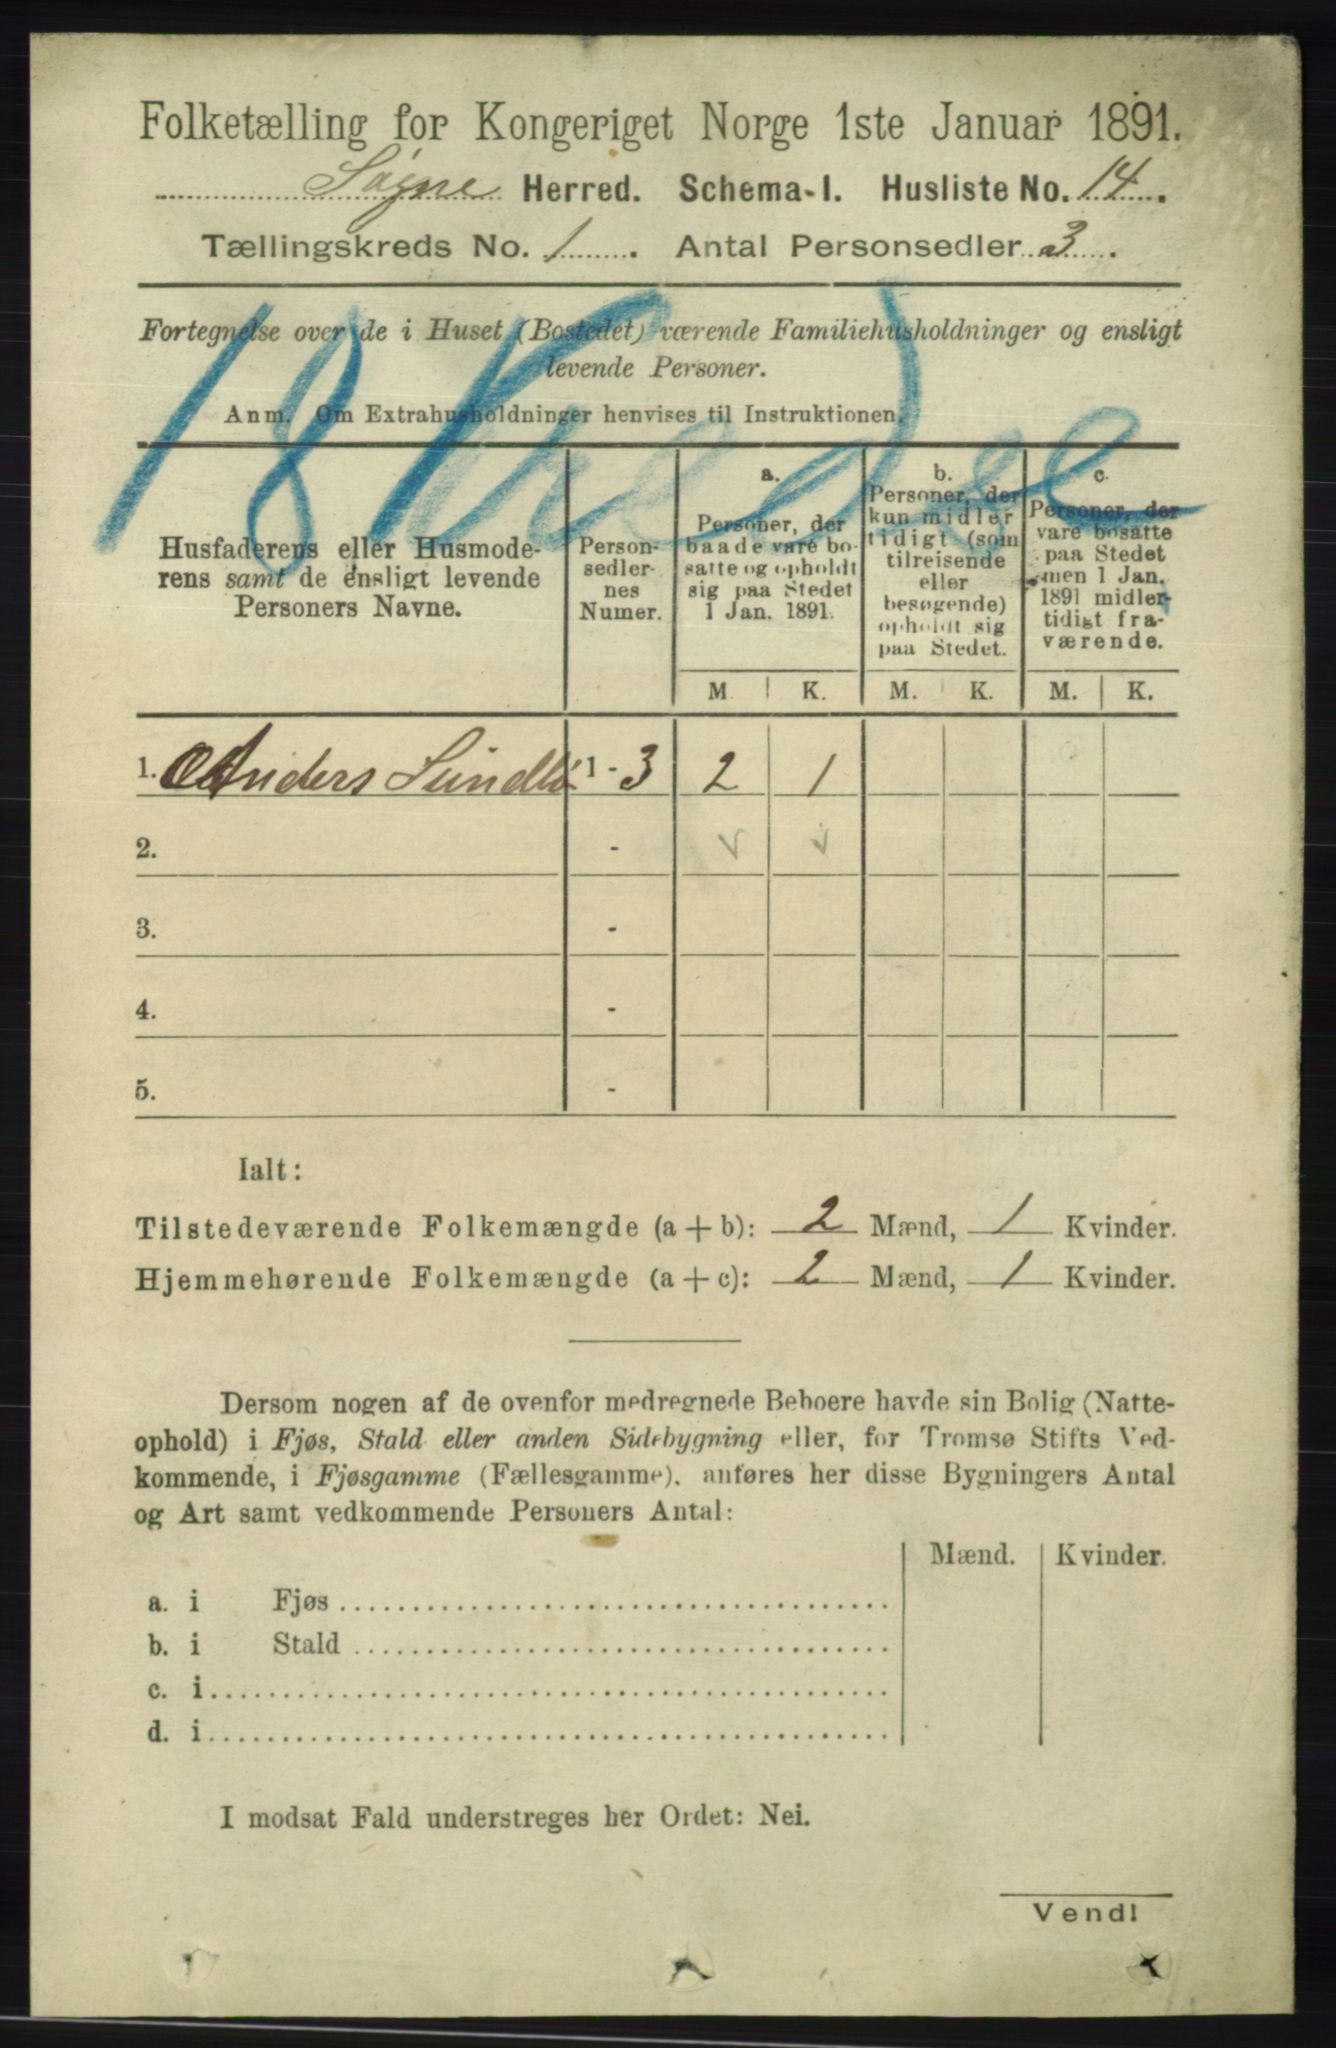 Folketælling for Kongeriget Norge 1ste Januar 1891.
Søgne Herred. Schema-I. Husliste No. 14.
Tællingskreds No. 1. Antal Personsedler 3.
Fortegnelse over de i Huset (Bostedet) værende Familiehusholdninger og ensligt
levende Personer.
Anm. Om Extrahusholdninger henvises til Instruktionen.
18 Kredse
Husfaderens eller Husmode-
rens samt de ensligt levende
Personers Navne.
Person-
sedler-
nes
Numer.
a.
Personer, der
baade vare bo-
satte og opholdt
sig paa Stedet
1 Jan. 1891.
b.
Personer, der
kun midler
tidigt (som
tilreisende
eller
besøgende)
opholdt sig
paa Stedet.
c.
Personer, der
vare bosatte
paa Stedet
men 1 Jan.
1891 midler-
tidigt fra-
værende.
M. K. M. K. M. K.
1. Anders 1 - 3 2 1
2. -
3. -
4. -
5. -
Ialt:
Tilstedeværende Folkemængde (a + b): 2 Mænd, 1 Kvinder.
Hjemmehørende Folkemængde (a + c): 2 Mænd, 1 Kvinder.
Dersom nogen af de ovenfor medregnede Beboere havde sin Bolig (Natte-
ophold) i Fjøs, Stald eller anden Sidebygning eller, for Tromsø Stifts Ved-
kommende, i Fjøsgamme (Fællesgamme), anføres her disse Bygningers Antal
og Art samt vedkommende Personers Antal:
Mænd. Kvinder.
a. i Fjøs
b. i Stald
c. i
d. i
I modsat Fald understreges her Ordet: Nei.
Vend!